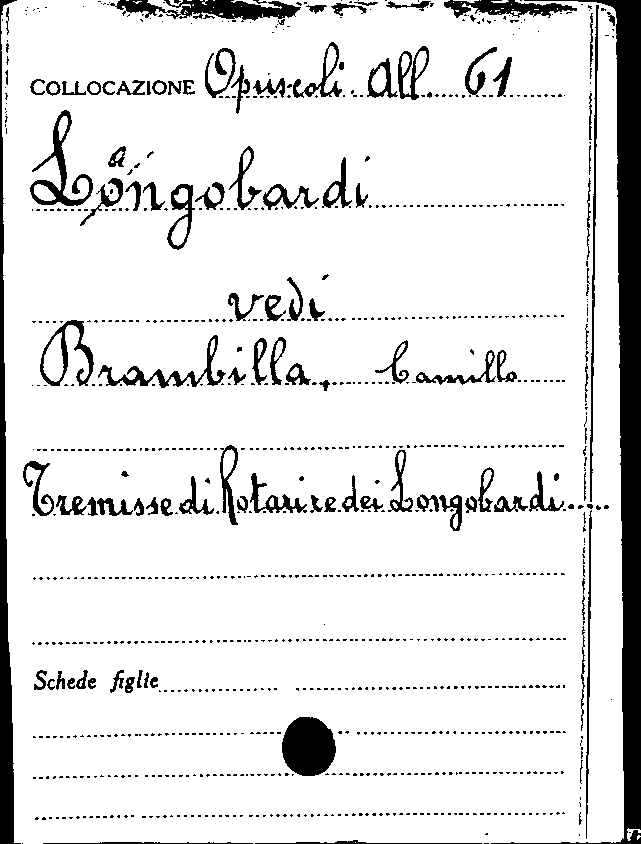 COLLOCAZIONE Opuscoli. All. 61
Longobardi
vedi
Brambilla, Camillo
Tremisse di Rotari re dei Longobardi.....
Schede figlie